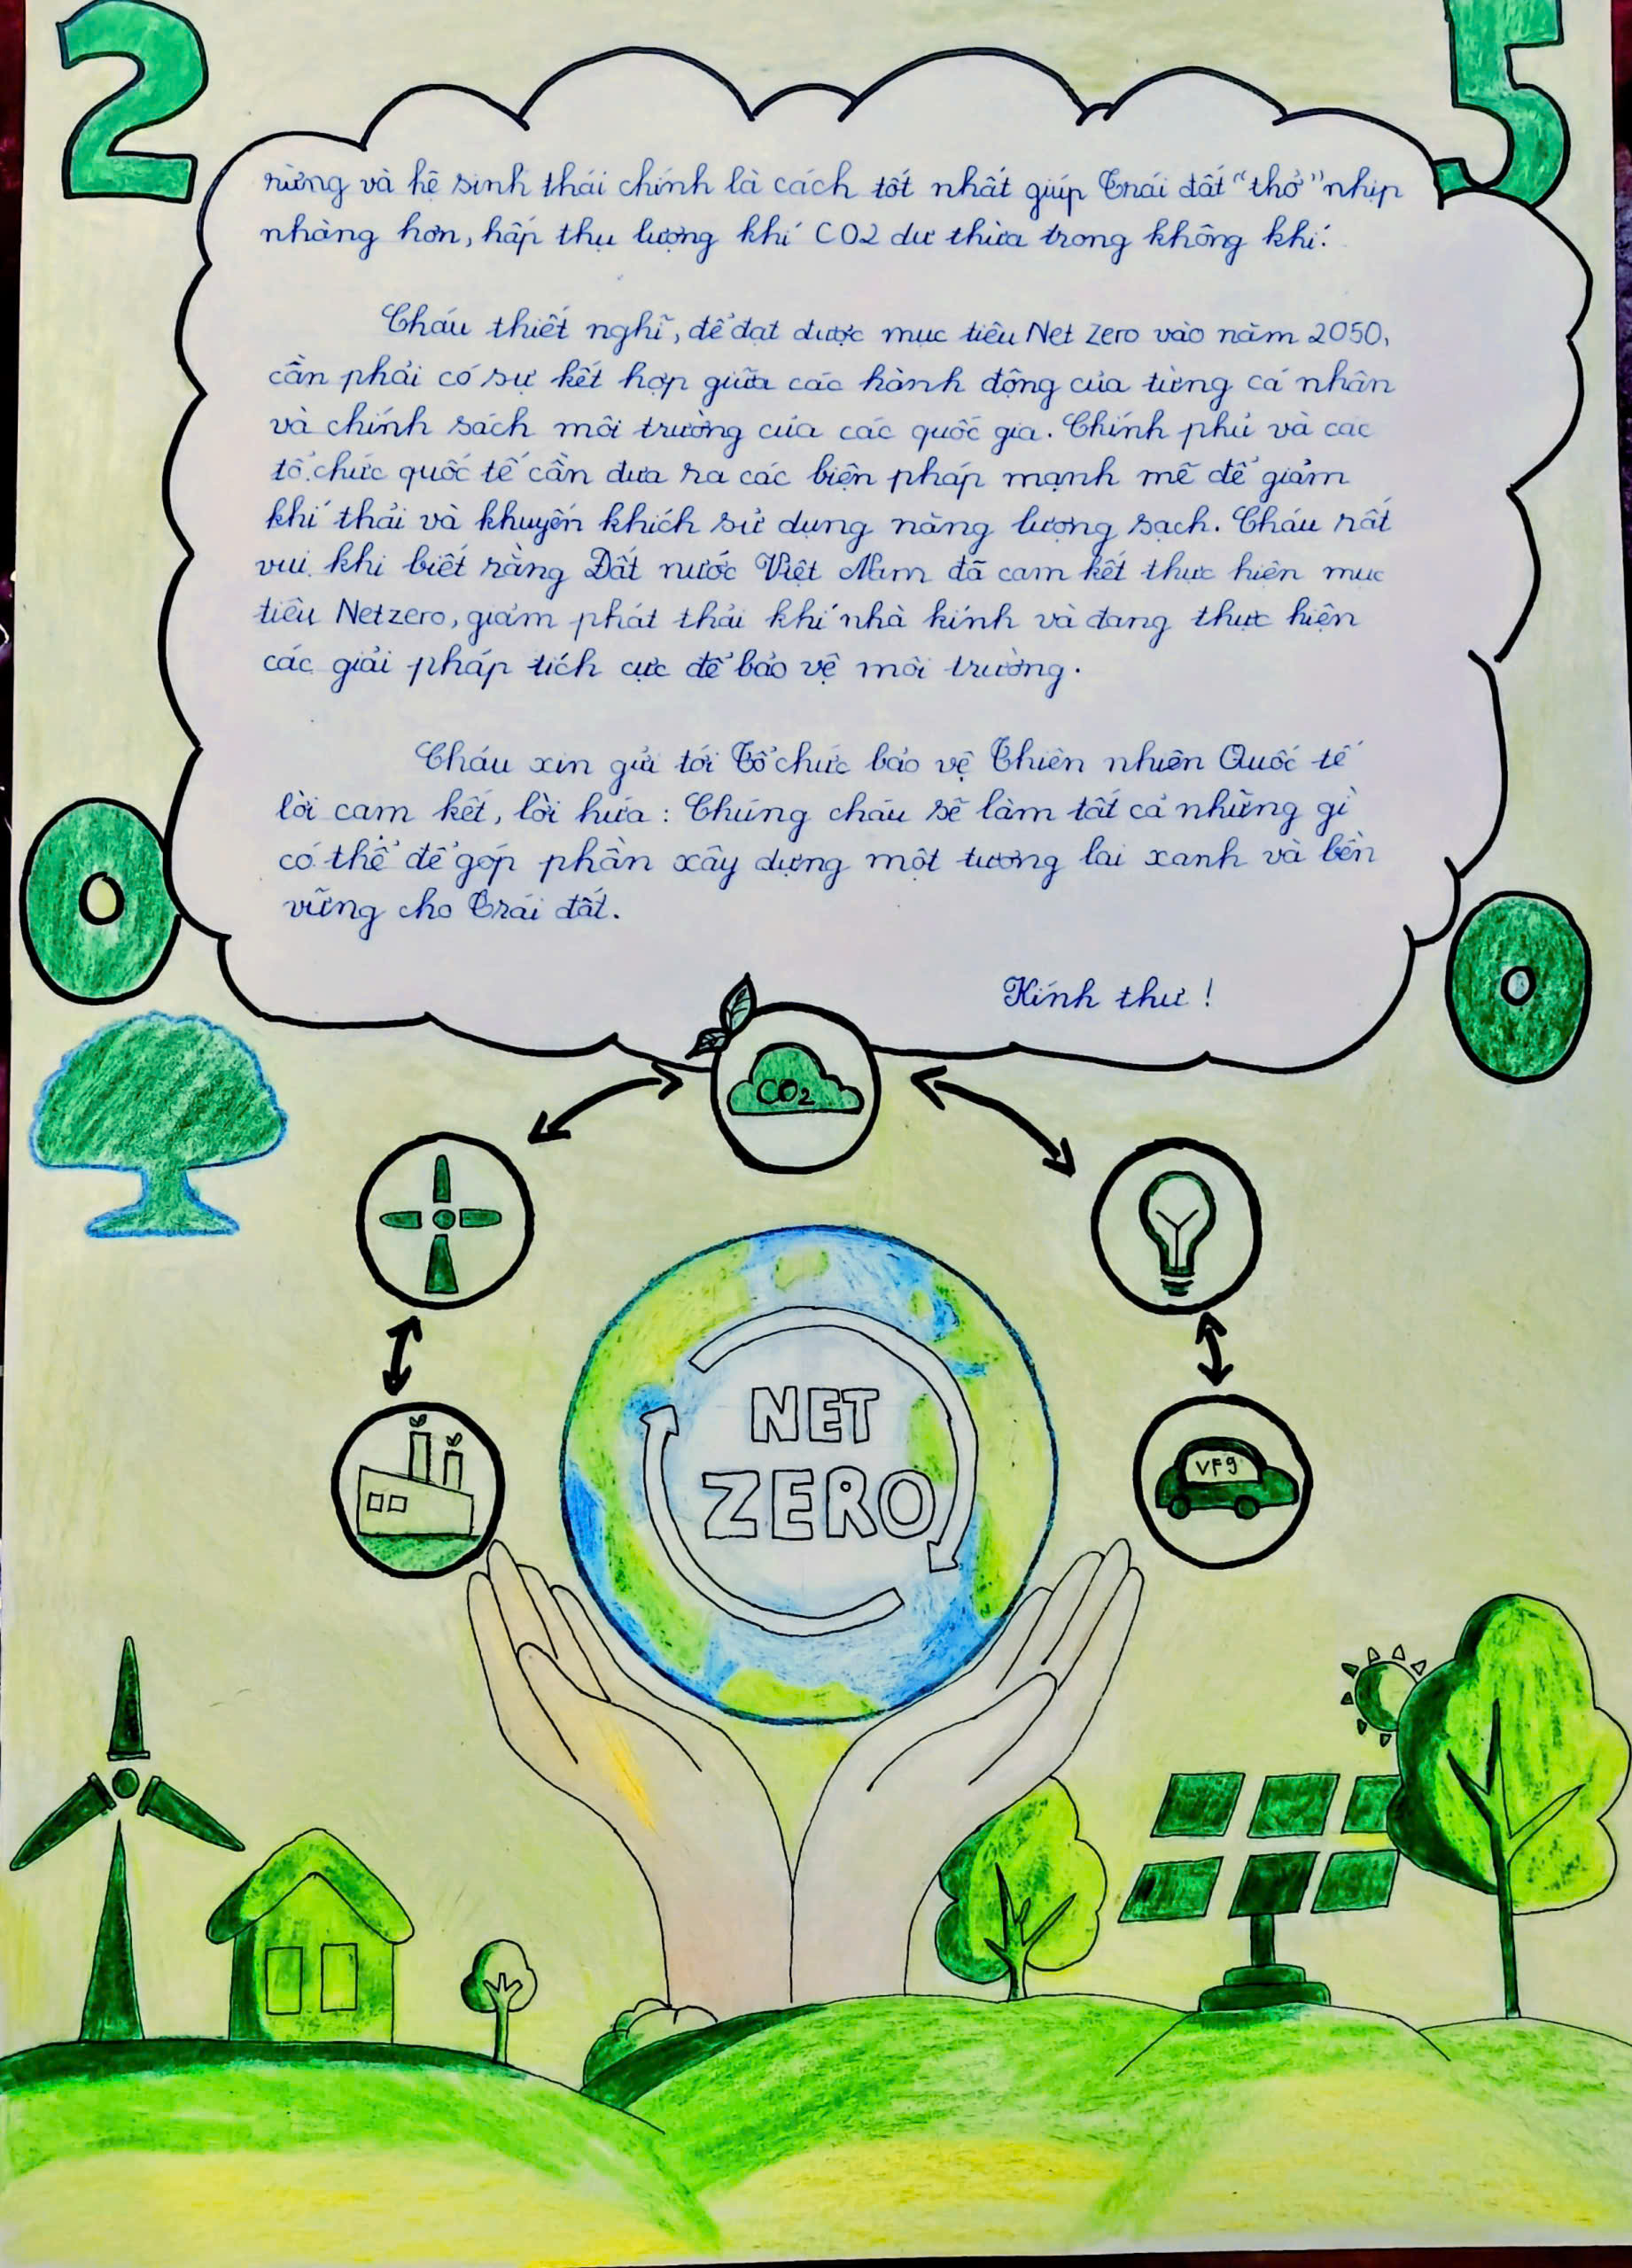 2
5
rừng và hệ sinh thái chính là cách tốt nhất giúp Trái đất "thở" nhịp
nhàng hơn, hấp thụ lượng khí CO2 dư thừa trong không khí.
Cháu thiết nghĩ, để đạt được mục tiêu Net Zero vào năm 2050,
cần phải có sự kết hợp giữa các hành động của từng cá nhân
và chính sách môi trường của các quốc gia. Chính phủ và các
tổ chức quốc tế cần đưa ra các biện pháp mạnh mẽ để giảm
khí thải và khuyến khích sử dụng năng lượng sạch. Cháu rất
vui khi biết rằng Đất nước Việt Nam đã cam kết thực hiện mục
tiêu Netzero, giảm phát thải khí nhà kính và đang thực hiện
các giải pháp tích cực để bảo vệ môi trường.
Cháu xin gửi tới Tổ chức bảo vệ Thiên nhiên Quốc tế
lời cam kết, lời hứa: Chúng cháu sẽ làm tất cả những gì
có thể để góp phần xây dựng một tương lai xanh và bền
vững cho Trái đất.
0
0
Kính thư!
CO2
NET
ZERO
VF9